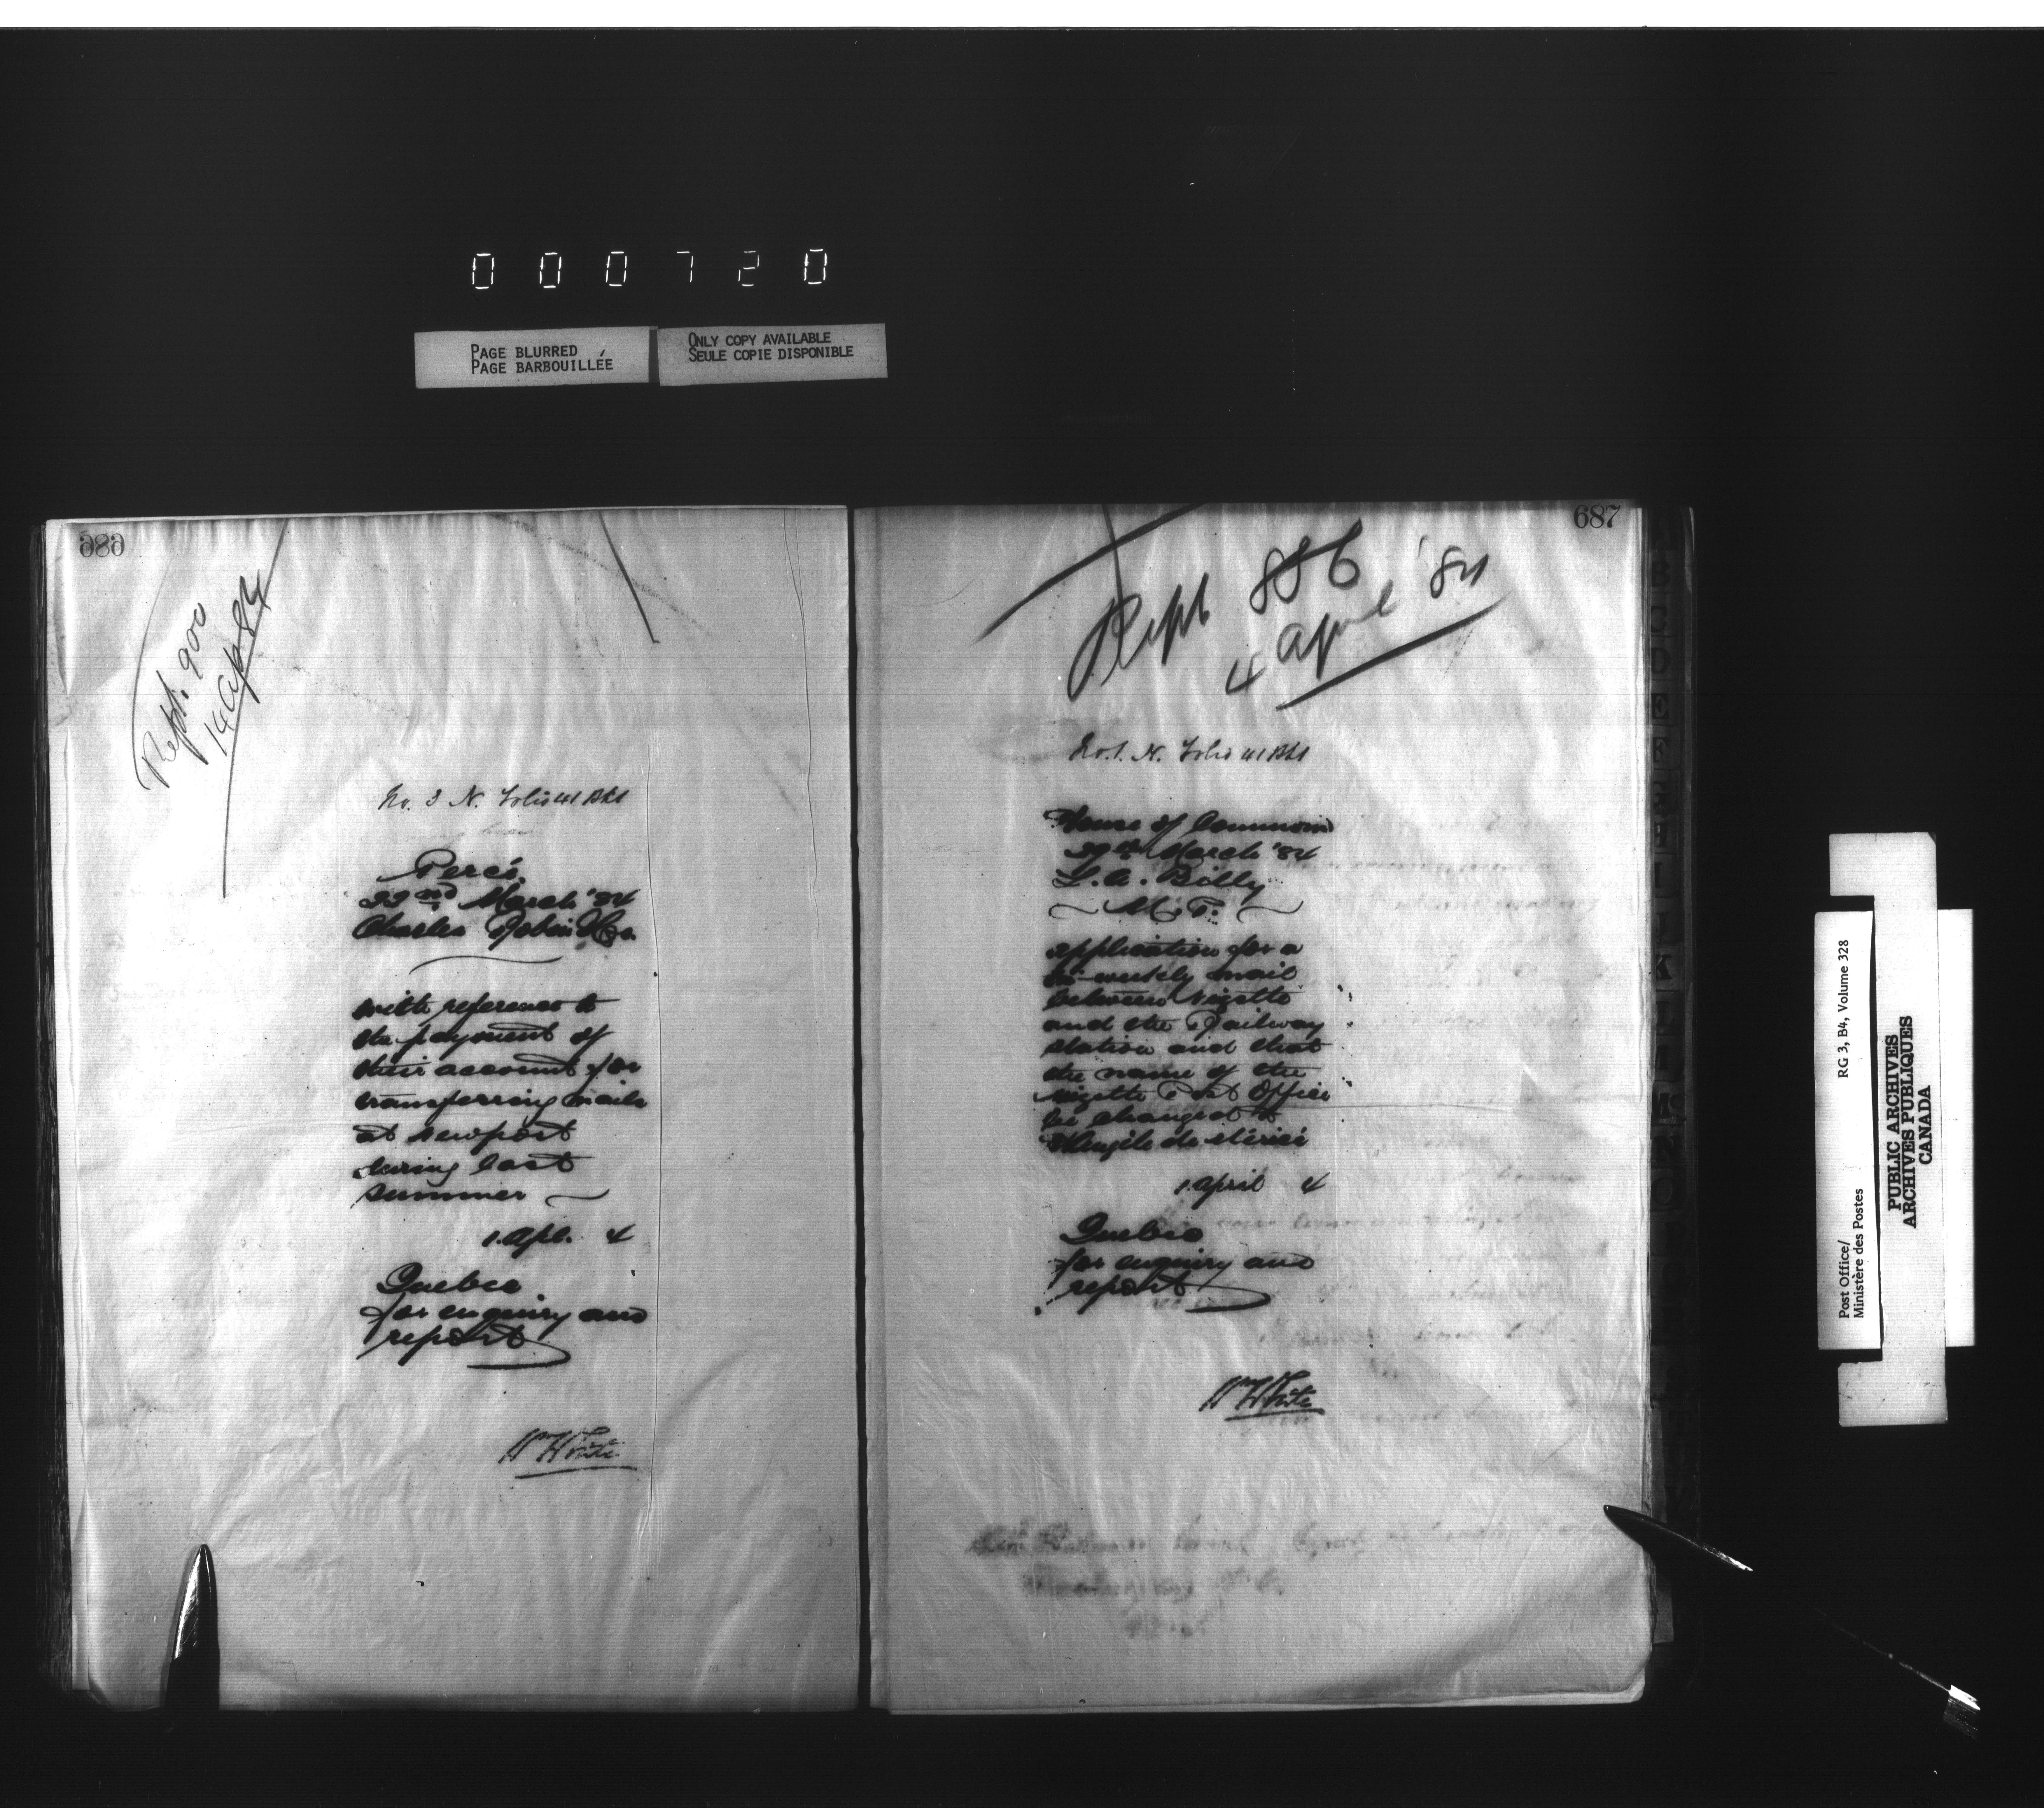 000720
PAGE BLURRED
PAGE BARBOUILLÉE
ONLY COPY AVAILABLE
SEULE COPIE DISPONIBLE
686
Rept. 900
14 Ap 84
No. 3 N. Folio 41 Bk1
Percé,
22nd March '84
Charles Robin & Co.
with reference to
the payment of
their account for
transferring mails
at Newport
during last
summer
1. Apl. 4
Quebec
for enquiry and
report
Wm White
687
Rept 886
4 April '84
No. 1. N. Folio 41 Bk1
House of Commons
29th March '84
L. A. Billy
M. P.
application for a
weekly mail
between Nizette
and the Railway
station and that
the name of the
Nizette Post Office
be changed to
1 April 4
Quebec
for enquiry and
report
Wm White
Post Office/
Ministère des Postes
RG 3, B4, Volume 328
PUBLIC ARCHIVES
ARCHIVES PUBLIQUES
CANADA